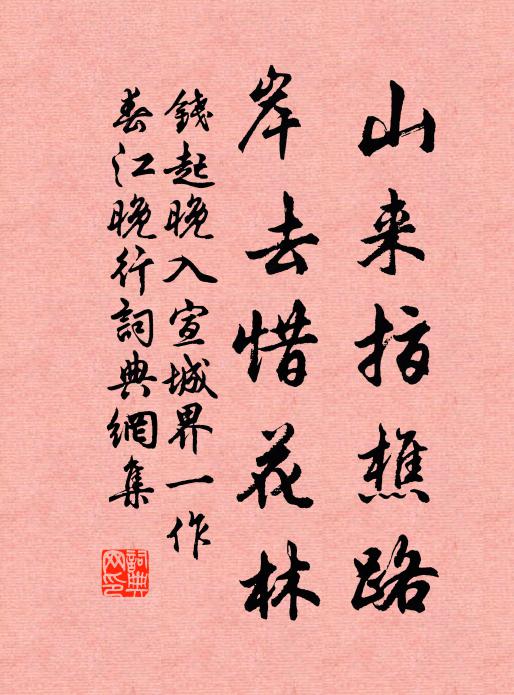 山来指樵路
岸去惜花林
錢起晚入宣城界一作
春江晚行詞典網集
詞典网印